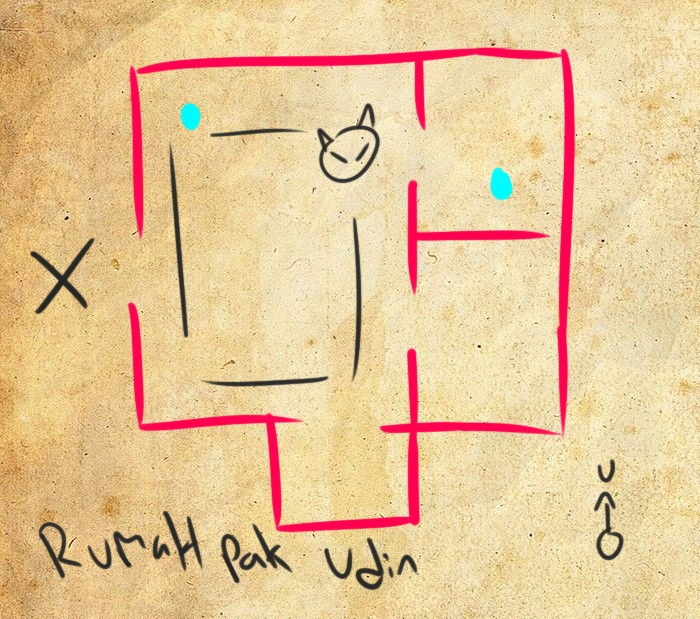 X
U
RUMaH Pak Udin